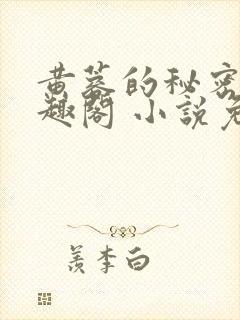 黄蓉的秘密
趣阁 小说免
羡李白